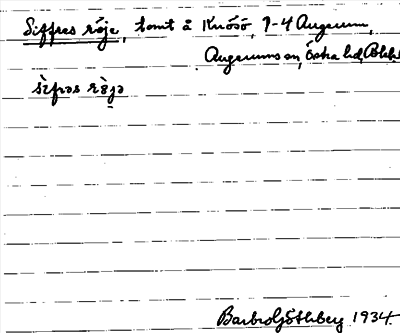 Siffres röje, tomt å Knösö, 1-4 Augerum,
Augerums sn, Östra hd, Blek
sìfrəs rö̀jə
Barbro Göthberg 1934.